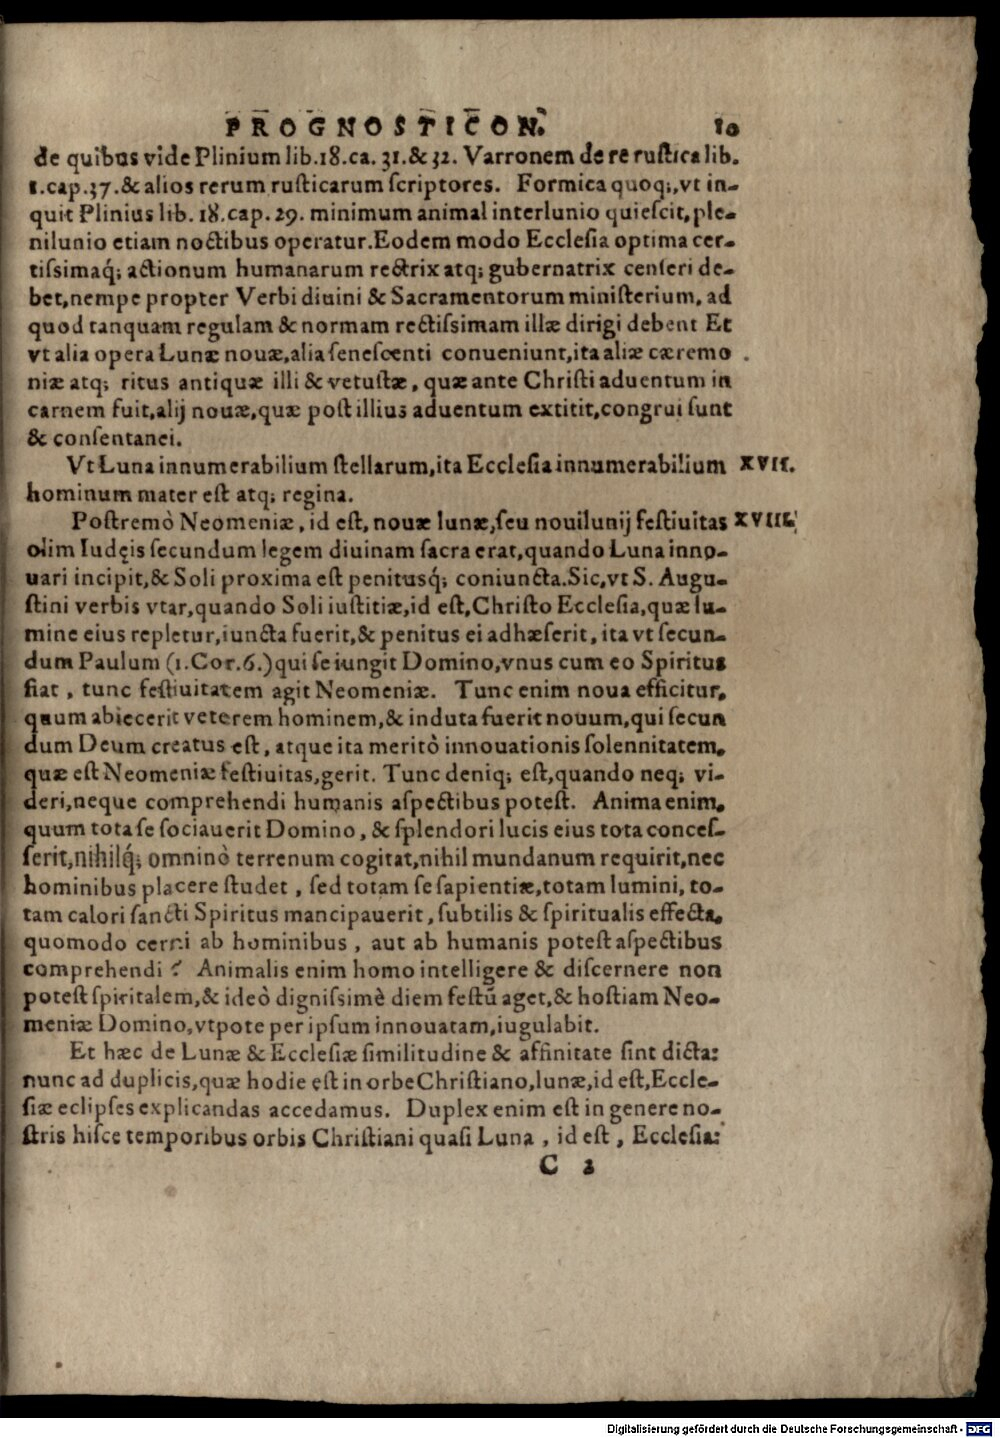 PROGNOSTICON. 10
de quibus vide Plinium lib.18.ca. 31.& 32. Varronem de re rustica lib.
1.cap.37.& alios rerum rusticarum scriptores. Formica quoq;,vt in-
quit Plinius lib. 18.cap. 29. minimum animal interlunio quiescit, ple-
nilunio etiam noctibus operatur.Eodem modo Ecclesia optima cer-
tissimaq́; actionum humanarum rectrix atq; gubernatrix censeri de-
bet,nempe propter Verbi diuini & Sacramentorum ministerium, ad
quod tanquam regulam & normam rectissimam illæ dirigi debent Et
vt alia opera Lunæ nouæ,alia senescenti conueniunt,ita aliæ cæremo
niæ atq; ritus antiquæ illi & vetustæ, quæ ante Christi aduentum in
carnem fuit,alij nouæ,quæ post illius aduentum extitit,congrui sunt
& consentanei.
Vt Luna innumerabilium stellarum,ita Ecclesia innumerabilium XVII.
hominum mater est atq; regina.
Postremò Neomeniæ, id est, nouæ lunæ,seu nouilunij festiuitas XVIII.
olim Iudęis secundum legem diuinam sacra erat,quando Luna inno-
uari incipit,& Soli proxima est penitusq́; coniuncta.Sic,vt S. Augu-
stini verbis vtar,quando Soli iustitiæ,id est,Christo Ecclesia,quæ lu-
mine eius repletur,iuncta fuerit,& penitus ei adhæserit, ita vt secun-
dum Paulum (1.Cor.6.)qui se iungit Domino,vnus cum eo Spiritus
fiat , tunc festiuitatem agit Neomeniæ. Tunc enim noua efficitur,
quum abiecerit veterem hominem,& induta fuerit nouum,qui secun
dum Deum creatus est, atque ita meritò innouationis solennitatem,
quæ est Neomeniæ festiuitas,gerit. Tunc deniq; est,quando neq; vi-
deri,neque comprehendi humanis aspectibus potest. Anima enim,
quum tota se sociauerit Domino, & splendori lucis eius tota conces-
serit,nihilq́; omninò terrenum cogitat,nihil mundanum requirit,nec
hominibus placere studet , sed totam se sapientiæ,totam lumini, to-
tam calori sancti Spiritus mancipauerit, subtilis & spiritualis effecta,
quomodo cerni ab hominibus , aut ab humanis potest aspectibus
comprehendi ? Animalis enim homo intelligere & discernere non
potest spiritalem,& ideò dignissimè diem festū aget,& hostiam Neo-
meniæ Domino,vtpote per ipsum innouatam,iugulabit.
Et hæc de Lunæ & Ecclesiæ similitudine & affinitate sint dicta:
nunc ad duplicis,quæ hodie est in orbe Christiano,lunæ,id est,Eccle-
siæ eclipses explicandas accedamus. Duplex enim est in genere no-
stris hisce temporibus orbis Christiani quasi Luna , id est , Ecclesia:
C 2
Digitalisierung gefördert durch die Deutsche Forschungsgemeinschaft - DFG